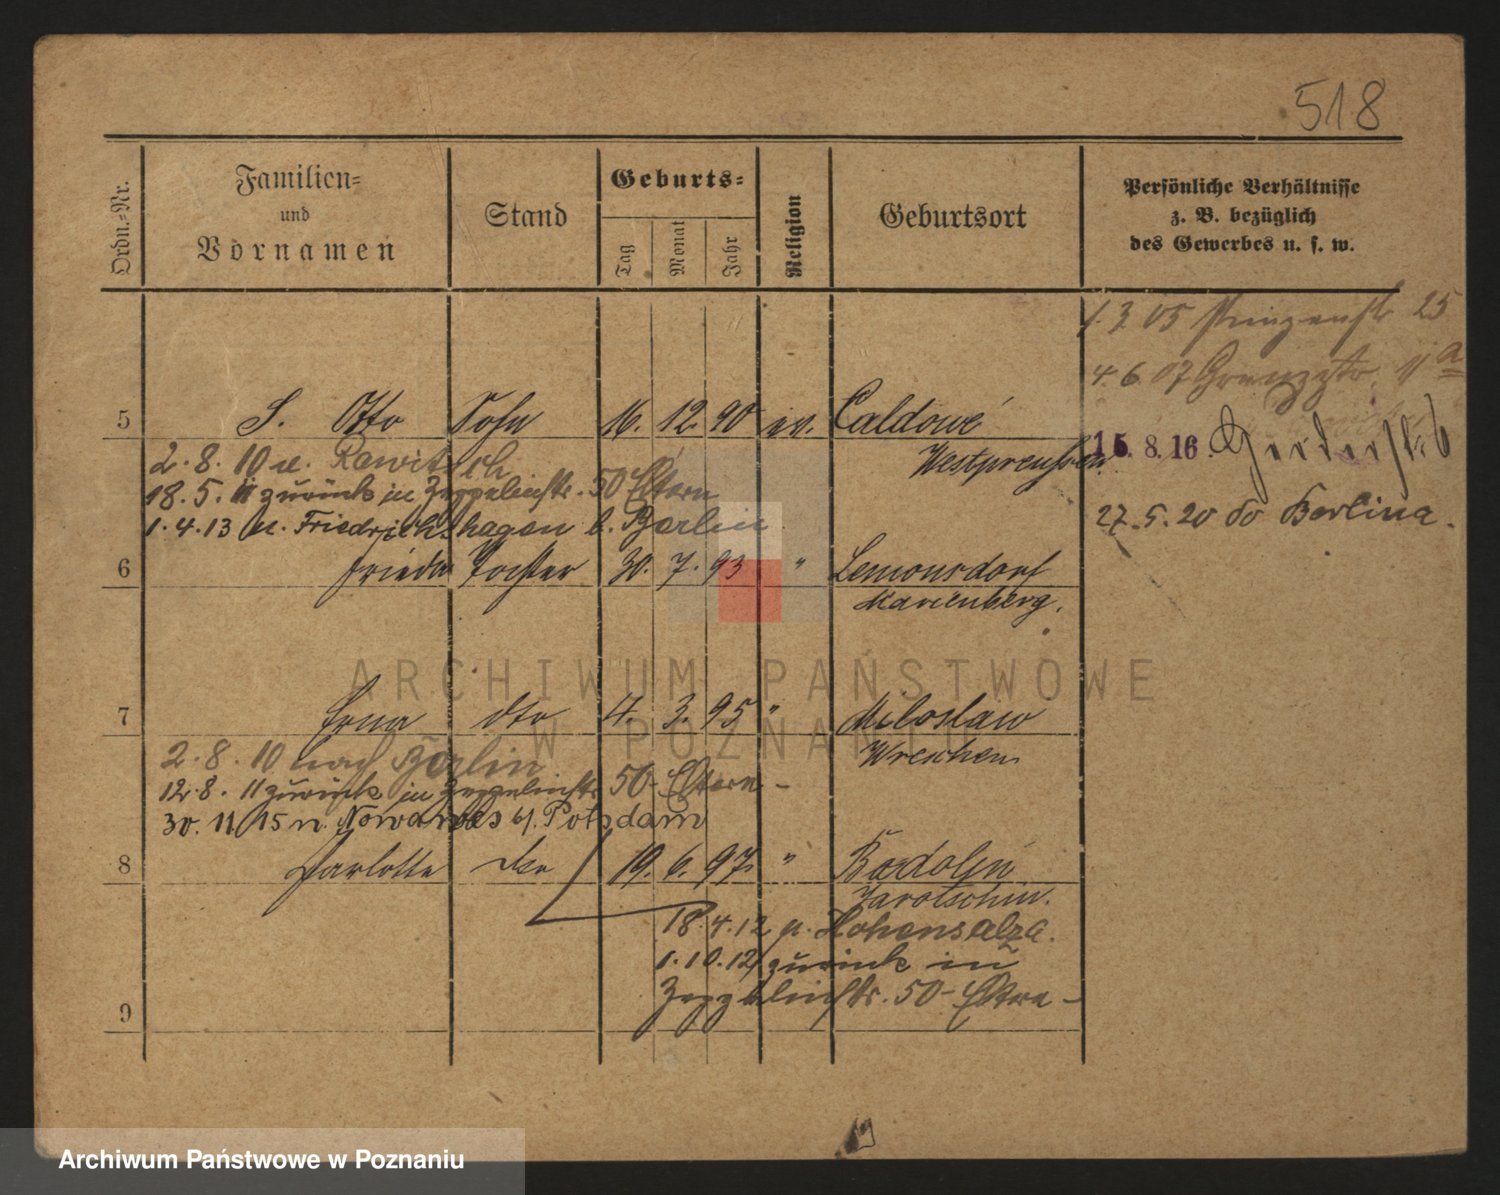 518
Ordn.-Nr.
Familien-
und
Vornamen
Stand
Geburts-
Tag
Monat
Jahr
Religion
Geburtsort
Persönliche Verhältnisse
z. B. bezüglich
des Gewerbes u. s. w.
1. 3. 05 Prinzenstr 25
4. 6. 07 Grenzstr. 11a
5 S. Otto Sohn 16. 12. 90 ev. Caldowe
Westpreußen.
15.8.16.
2. 8. 10 n. Rawitsch
18. 5. 11 zurück in Zeppelinstr. 50 Eltern
1. 4. 13 n. Friedrichshagen b. Berlin
27. 5. 20 do Berlina.
6 Frieda Tochter 30. 7. 93 "
Marienberg.
7 Erna dto 4. 3. 95 " Miloslaw
Wreschen
2. 8. 10 nach Berlin
12. 8. 11 zurück in Zeppelinstr 50 - Eltern -
30. 11. 15 n. Nowawes b/. Potsdam
8 Charlotte dto 19. 6. 97. " Radolin
Jarotschin.
18. 4. 12 n. Hohensalza.
1. 10. 12 zurück in
Zeppelinstr. 50 - Eltern -
9
ARCHIWUM PAŃSTWOWE
W POZNANIU
Archiwum Państwowe w Poznaniu